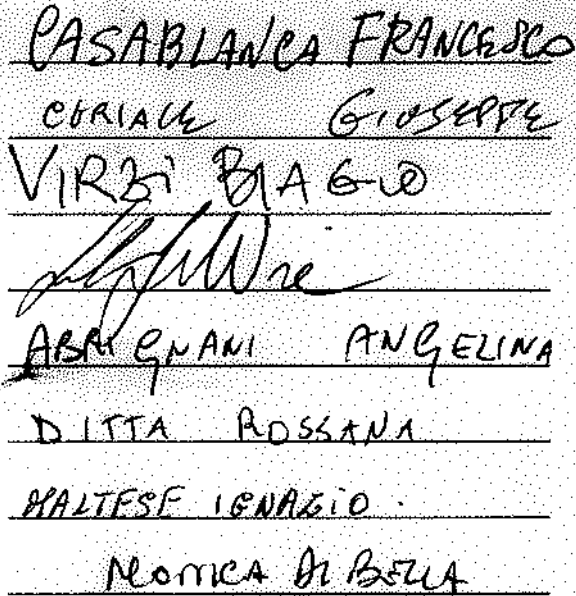 CASABLANCA FRANCESCO
CURIALE GIUSEPPE
VIRZÌ BIAGIO
ABRIGNANI ANGELINA
DITTA ROSSANA
MALTESE IGNAZIO.
MONICA DI BELLA